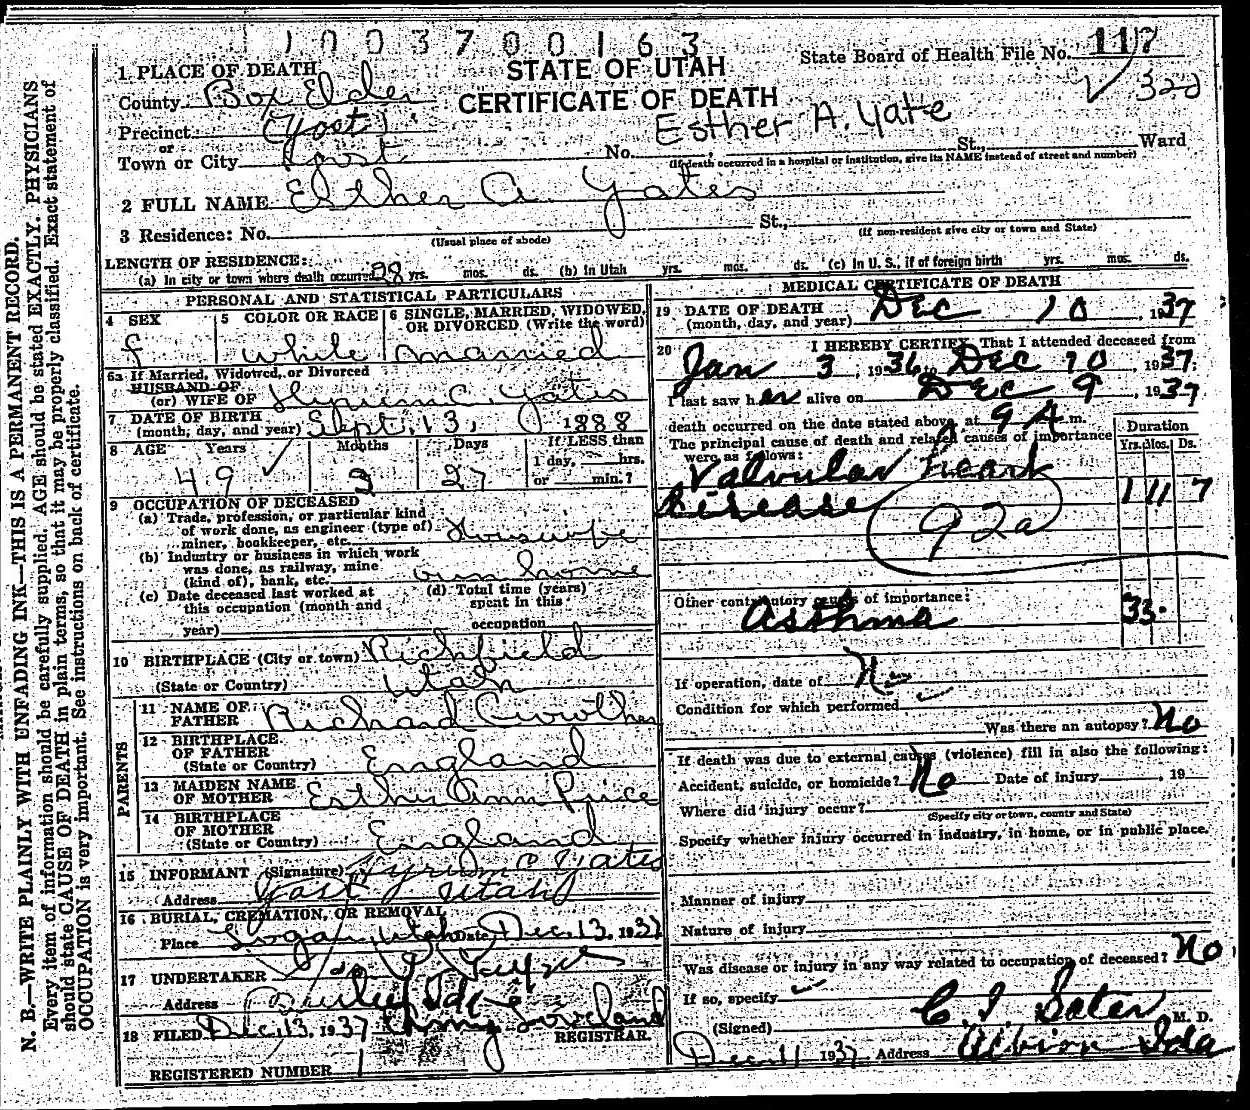 1003700163
State Board of Health File No. 117
STATE OF UTAH
CERTIFICATE OF DEATH
322
1 PLACE OF DEATH
County Box Elder
Precinct (Yost)
or
Town or City Yost No. St., Ward
Esther A. Yate
(If death occurred in a hospital or institution, give its NAME instead of street and number)
2 FULL NAME Esther A. Yates
3 Residence: No. St.,
(Usual place of abode) (If non-resident give city or town and State)
LENGTH OF RESIDENCE:
(a) In city or town where death occurred 28 yrs. mos. ds. (b) In Utah yrs. mos. ds. (c) In U. S., if of foreign birth yrs. mos. ds.
PERSONAL AND STATISTICAL PARTICULARS
4 SEX 5 COLOR OR RACE 6 SINGLE, MARRIED, WIDOWED, OR DIVORCED (Write the word)
f white married
6a If Married, Widowed, or Divorced
HUSBAND OF
(or) WIFE OF Hyrum C. Yates
7 DATE OF BIRTH
(month, day, and year) Sept. 13, 1888
8 AGE Years Months Days If LESS than
1 day, hrs.
49 2 27 or min.?
9 OCCUPATION OF DECEASED
(a) Trade, profession, or particular kind
of work done, as engineer (type of)
miner, bookkeeper, etc. Housewife
(b) Industry or business in which work
was done, as railway, mine
(kind of), bank, etc. own home
(c) Date deceased last worked at (d) Total time (years)
this occupation (month and spent in this
year) occupation
10 BIRTHPLACE (City or town) Richfield
(State or Country) Utah
PARENTS
11 NAME OF
FATHER Richard Crowther
12 BIRTHPLACE
OF FATHER
(State or Country) England
13 MAIDEN NAME
OF MOTHER Esther Ann Price
14 BIRTHPLACE
OF MOTHER
(State or Country) England
15 INFORMANT (Signature) Hyrum C Yates
(Address Yost Utah
16 BURIAL, CREMATION, OR REMOVAL
Place Logan, Utah Date Dec. 13, 1937
17 UNDERTAKER
Address Burley Ida
18 FILED Dec. 13, 1937 Loveland
REGISTRAR.
REGISTERED NUMBER 1
MEDICAL CERTIFICATE OF DEATH
19 DATE OF DEATH
(month, day, and year) Dec 10, 1937
20 I HEREBY CERTIFY, That I attended deceased from
Jan 3, 1936 to Dec 10, 1937;
I last saw her alive on Dec 9, 1937
death occurred on the date stated above, at 9 A m.
The principal cause of death and related causes of importance
were as follows:
Duration
Yrs. Mos. Ds.
Valvular heart
Disease 1 11 7
92a
Other contributory causes of importance:
Asthma 33
If operation, date of No
Condition for which performed
Was there an autopsy? No
If death was due to external causes (violence) fill in also the following:
Accident, suicide, or homicide? No Date of injury , 19
Where did injury occur?
(Specify city or town, county and State)
Specify whether injury occurred in industry, in home, or in public place.
Manner of injury
Nature of injury
Was disease or injury in any way related to occupation of deceased? No
If so, specify
(Signed) C. I. Sater M. D.
Dec. 11 1937 Address Albion Ida
N. B.—WRITE PLAINLY WITH UNFADING INK—THIS IS A PERMANENT RECORD.
Every item of information should be carefully supplied. AGE should be stated EXACTLY. PHYSICIANS
should state CAUSE OF DEATH in plain terms, so that it may be properly classified. Exact statement of
OCCUPATION is very important. See instructions on back of certificate.